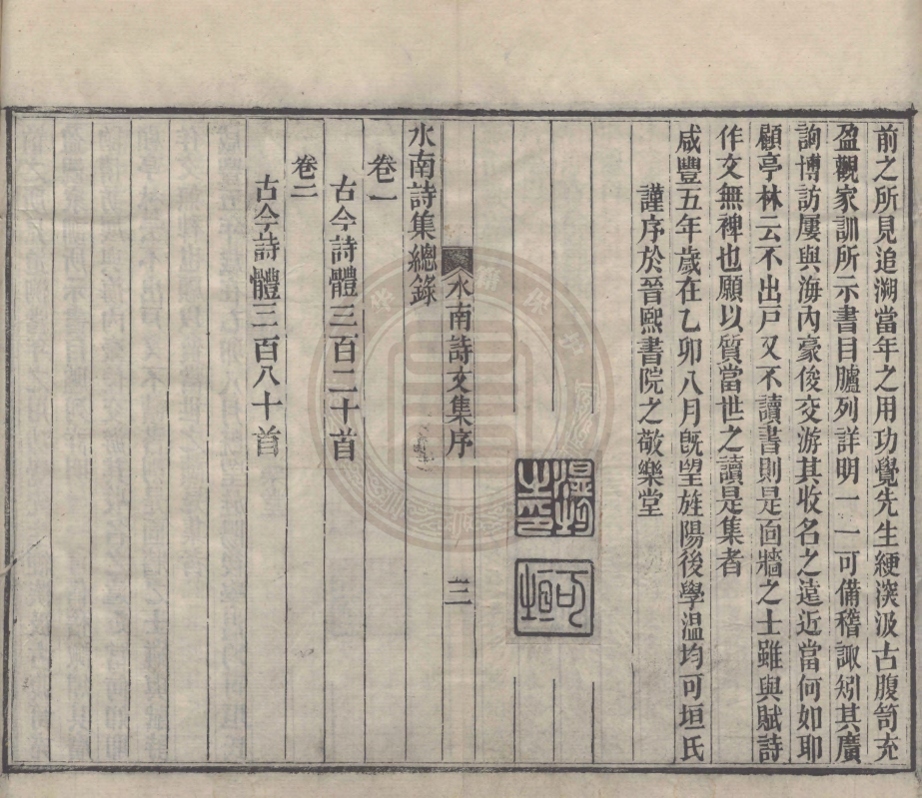 前之所見追溯當年之用功覺先生綆深汲古腹笥充
盈觀家訓所示書目臚列詳明一一可備稽諏矧其廣
詢博訪屢與海內豪俊交游其收名之遠近當何如耶
顧亭林云不出戶又不讀書則是面牆之士雖與賦詩
作文無裨也願以質當世之讀是集者
咸豐五年歲在乙卯八月旣望旌陽後學溫均可垣氏
謹序於晉熙書院之敬樂堂
可垣
水南詩文集序
三
水南詩集總錄
卷一
古今詩體三百二十首
卷二
古今詩體三百八十首